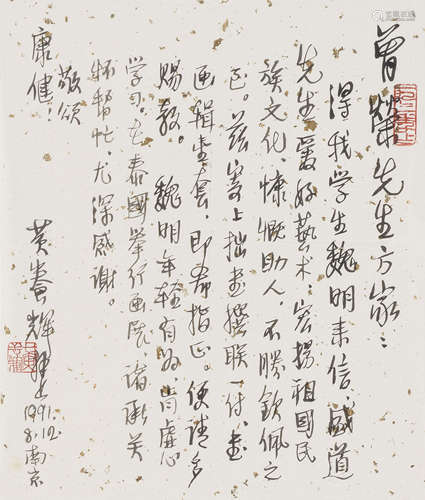 曾燦先生方家：
得我学生魏明来信，盛道
先生爱好艺术；宏扬祖国民
族文化，慷慨助人，不勝钦佩之
至。兹寄上拙画撰联一付，画
画辑壹套，即希指正。便请多
赐教。魏明年轻有为，尚虚心
学习，在泰國举行画展，诸承关
怀帮忙，尤深感谢。
敬颂
康健！
黄养辉拜上
1991.12.
8.南京